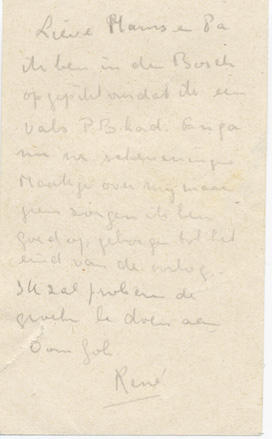 Lieve Mams en Pa
ik ben in den Bosch
opgepikt omdat ik een
vals P.B. had. En ga
nu na scheveningen
Maakge over mij maar
geen zorgen ik ben
goed op geborgen tot het
eind van de oorlog.
Ik zal proberen de
groeten te doen aan
Oom Job
René